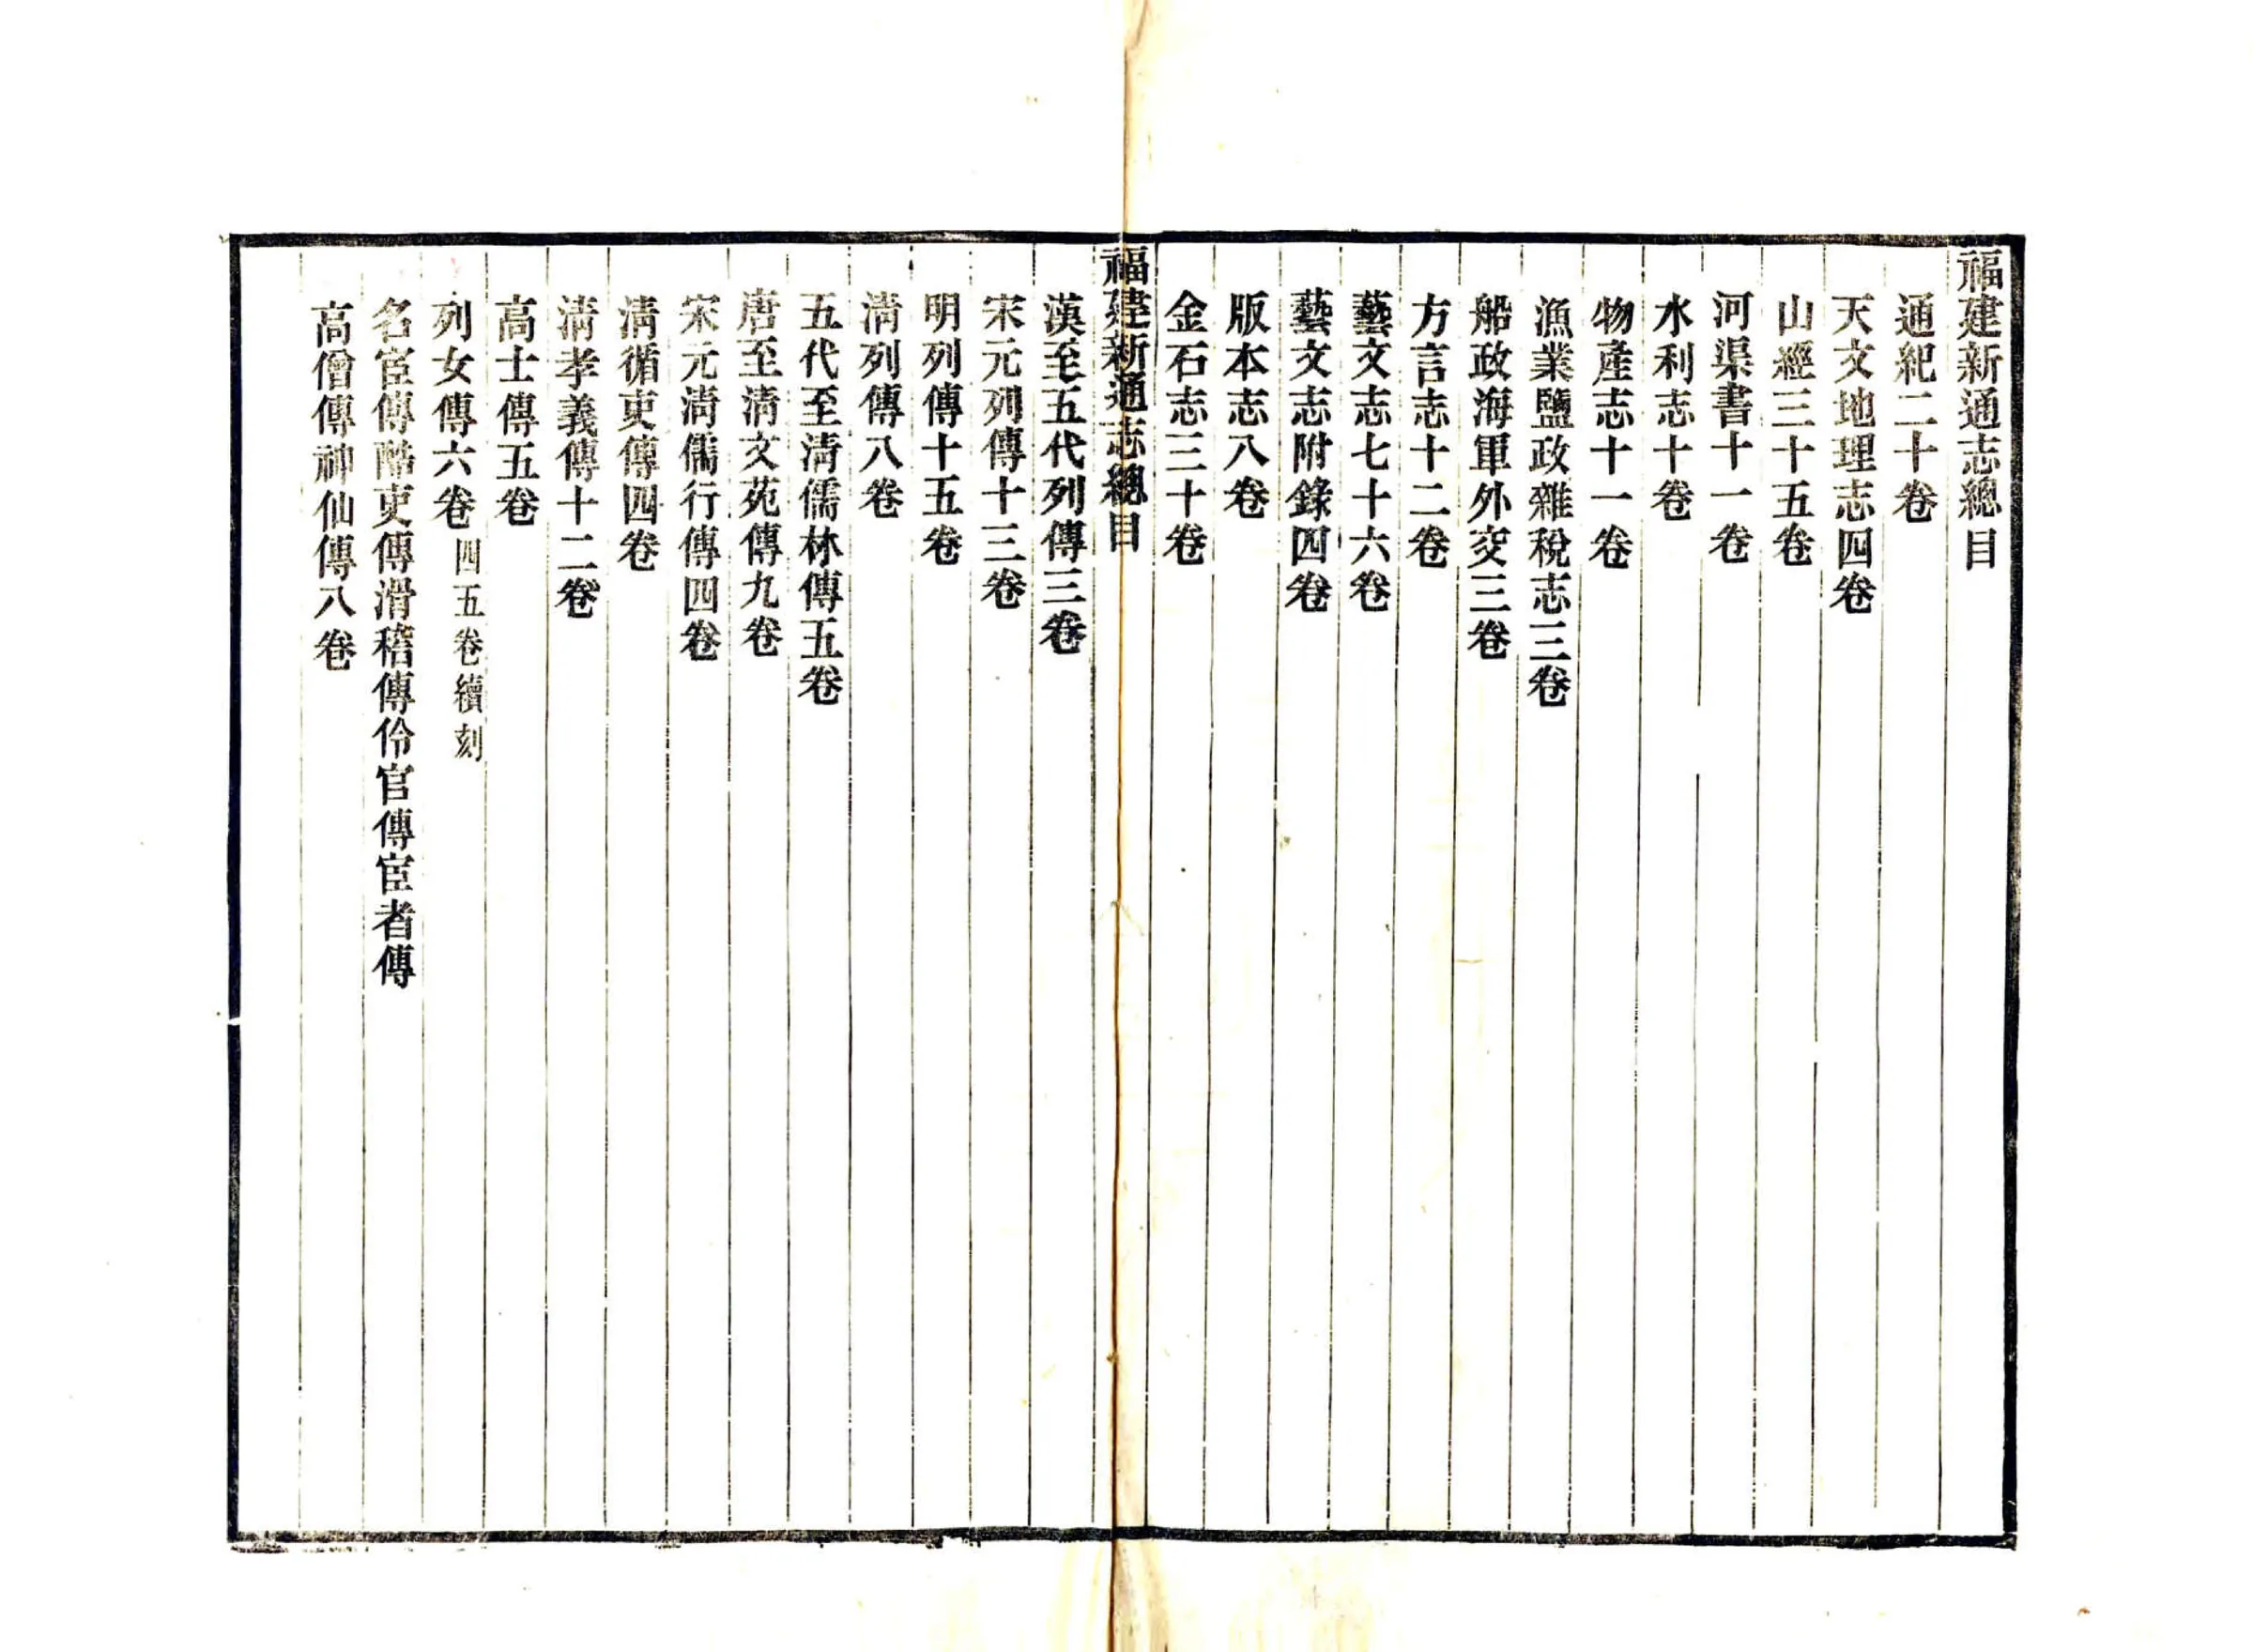 福建新通志總目
通紀二十卷
天文地理志四卷
山經三十五卷
河渠書十一卷
水利志十卷
物產志十一卷
漁業鹽政雜稅志三卷
船政海軍外交三卷
方言志十二卷
藝文志七十六卷
藝文志附錄四卷
版本志八卷
金石志三十卷
福建新通志總目
漢至五代列傳三卷
宋元列傳十三卷
明列傳十五卷
清列傳八卷
五代至清儒林傳五卷
唐至清文苑傳九卷
宋元清儒行傳四卷
清循吏傳四卷
清孝義傳十二卷
高士傳五卷
列女傳六卷四五卷續刻
名宦傳酷吏傳滑稽傳伶官傳宦者傳
高僧傳神仙傳八卷